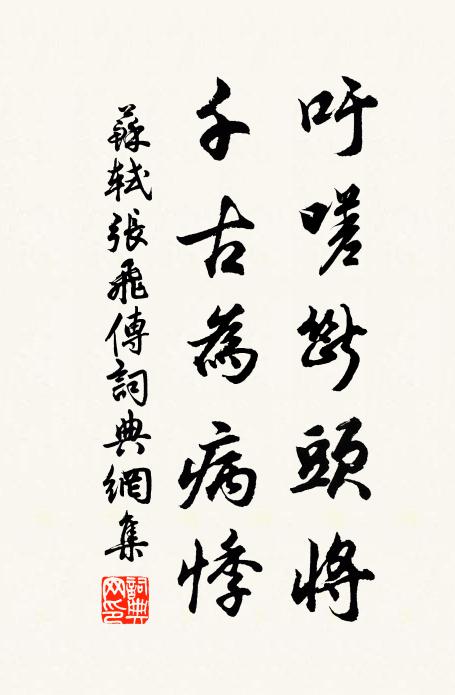 吁嗟斷頭將
千古為病悸
蘇軾張飛傳詞典網集
詞典網印